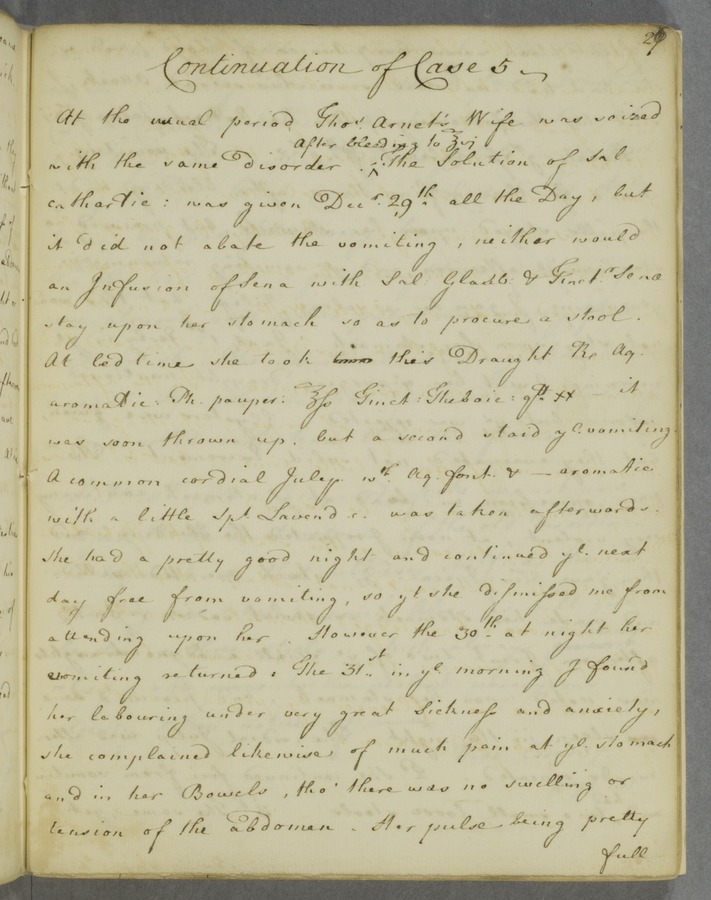 29
Continuation of Case 5
At the usual period Thos. Arnet's Wife was seized
After bleeding to ℥vj
with the same Disorder . ^ The Solution of Sal
cathartic: was given Decr. 29th. all the Day, but
it did not abate the vomiting, neither would
an Infusion of Sena with Sal: Glaub. & Tinctr. Sena
stay upon her stomach so as to procure a stool.
At bed time she took this Draught Rx Aq.
aromatic: Th. pauper. ℥ss Tinct: Thebaic: gtt. xx — it
was soon thrown up, but a second staid ye. vomiting.
A common cordial Julep wth. Aq. font. & — aromatic
with a little Spt. Lavend c. was taken afterwards.
She had a pretty good night and continued ye. next
day free from vomiting, so yt she dismissed me from
attending upon her. However the 30th. at night her
vomiting returned: The 31st. in ye. morning I found
her labouring under very great Sickness and anxiety,
she complained likewise of much pain at ye. stomach
and in her Bowels, tho' there was no swelling or
tension of the abdomen. Her pulse being pretty
full